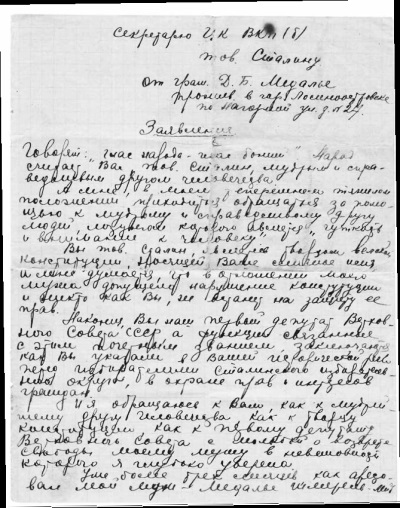 Секретарю Ц.К ВКП(б)
тов. Сталину
от граж. Д. Б. Медалье
прожив в гор. Лосиноостровске
по Нагорной ул. д. № 27.
Заявление
Говорят: "глас народа - глас божий" Народ
считает Вас тов. Сталин, мудрым и спра-
ведливым другом человечества.
А мне, в моем теперешнем тяжелом
положении приходится обращаться за помо-
щью к мудрому и справедливому другу
людей, лозунгом которого является "чуткость
и внимание к человеку".
Вы тов. Сталин являетесь творцом великой
конституции, носящей Ваше имя
и мне думается, что в отношении моего
мужа допущено нарушение конституции
и никто как Вы, не встанет на защиту ее
прав.
Наконец, Вы наш первый депутат Верхов-
ного Совета СССР а функции связанные
с этим почетным званием заключаются
как Вы указали в Вашей исторической речи
перед избирателями Сталинского избиратель-
ного округа, в охране прав и интересов
граждан.
И я обращаюсь к Вам как к мудрей-
шему другу человечества как к творцу
конституции как к первому депутату
Верховного Совета с мольбой о возврате
свободы моему мужу в невиновности
которого я глубоко уверена.
Уже более трех месяцев как аресто-
ван мой муж - Медалье